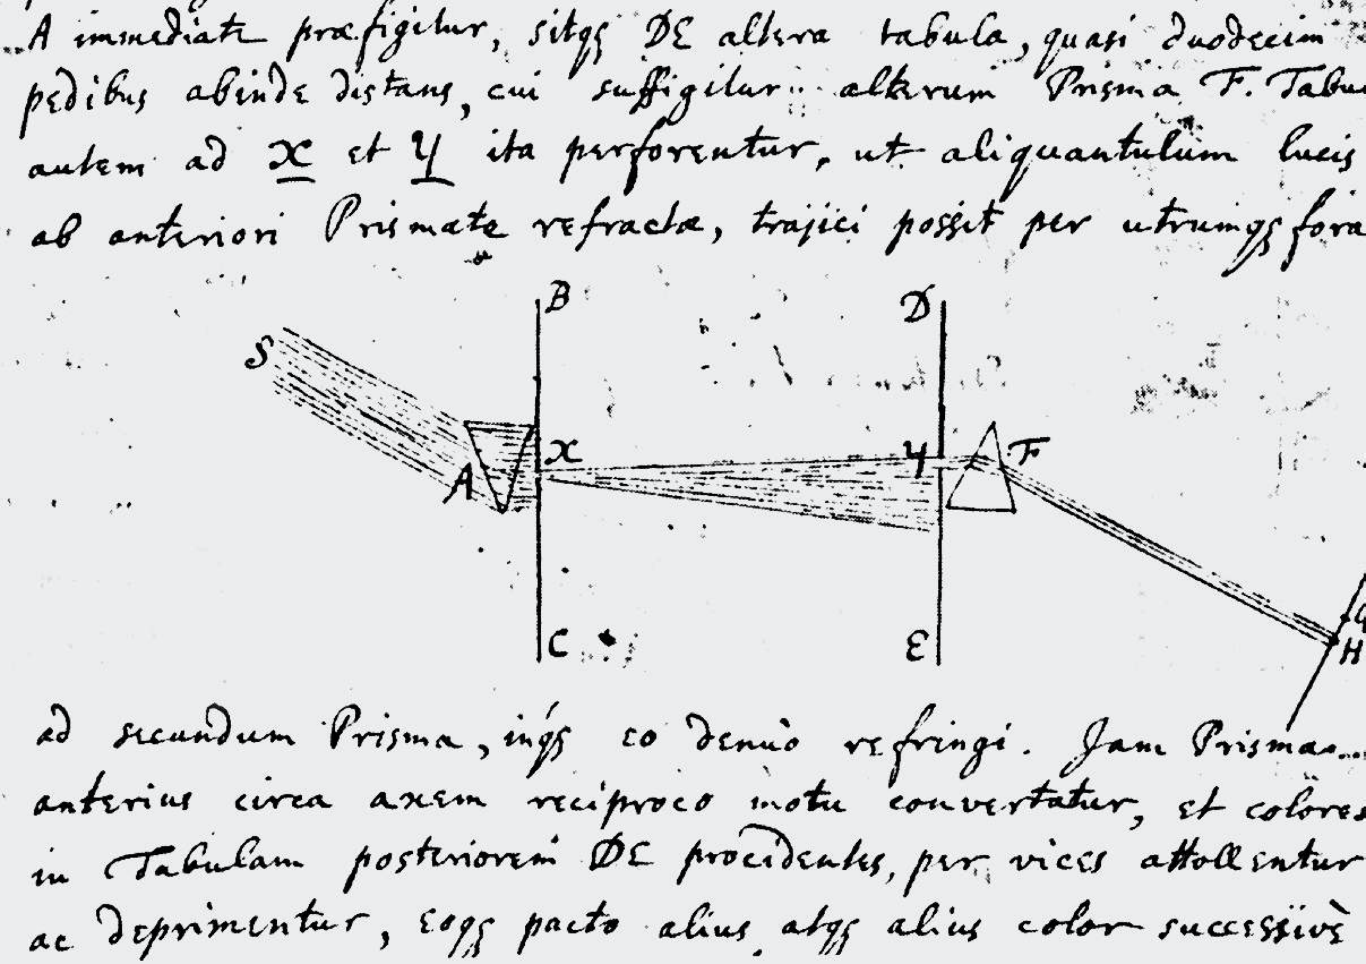 A immediatè præfigitur, sitqꝫ DE altera tabula, quasi duodecim
pedibus abinde distans, cui suffigitur alterum Prisma F. Tabu
autem ad x et y ita perforentur, ut aliquantulum lucis
ab anteriori Prismate refractæ, trajici possit per utrumqꝫ fora
B
D
S
x
y
F
A
G
H
C
E
ad secundum Prisma, inqꝫ eo denuò refringi. Jam Prisma
anterius circa axem reciproco motu convertatur, et colores
in Tabulam posteriorem DE procidentes, per vices attollentur
ac deprimentur, eoqꝫ pacto alius atqꝫ alius color successivè